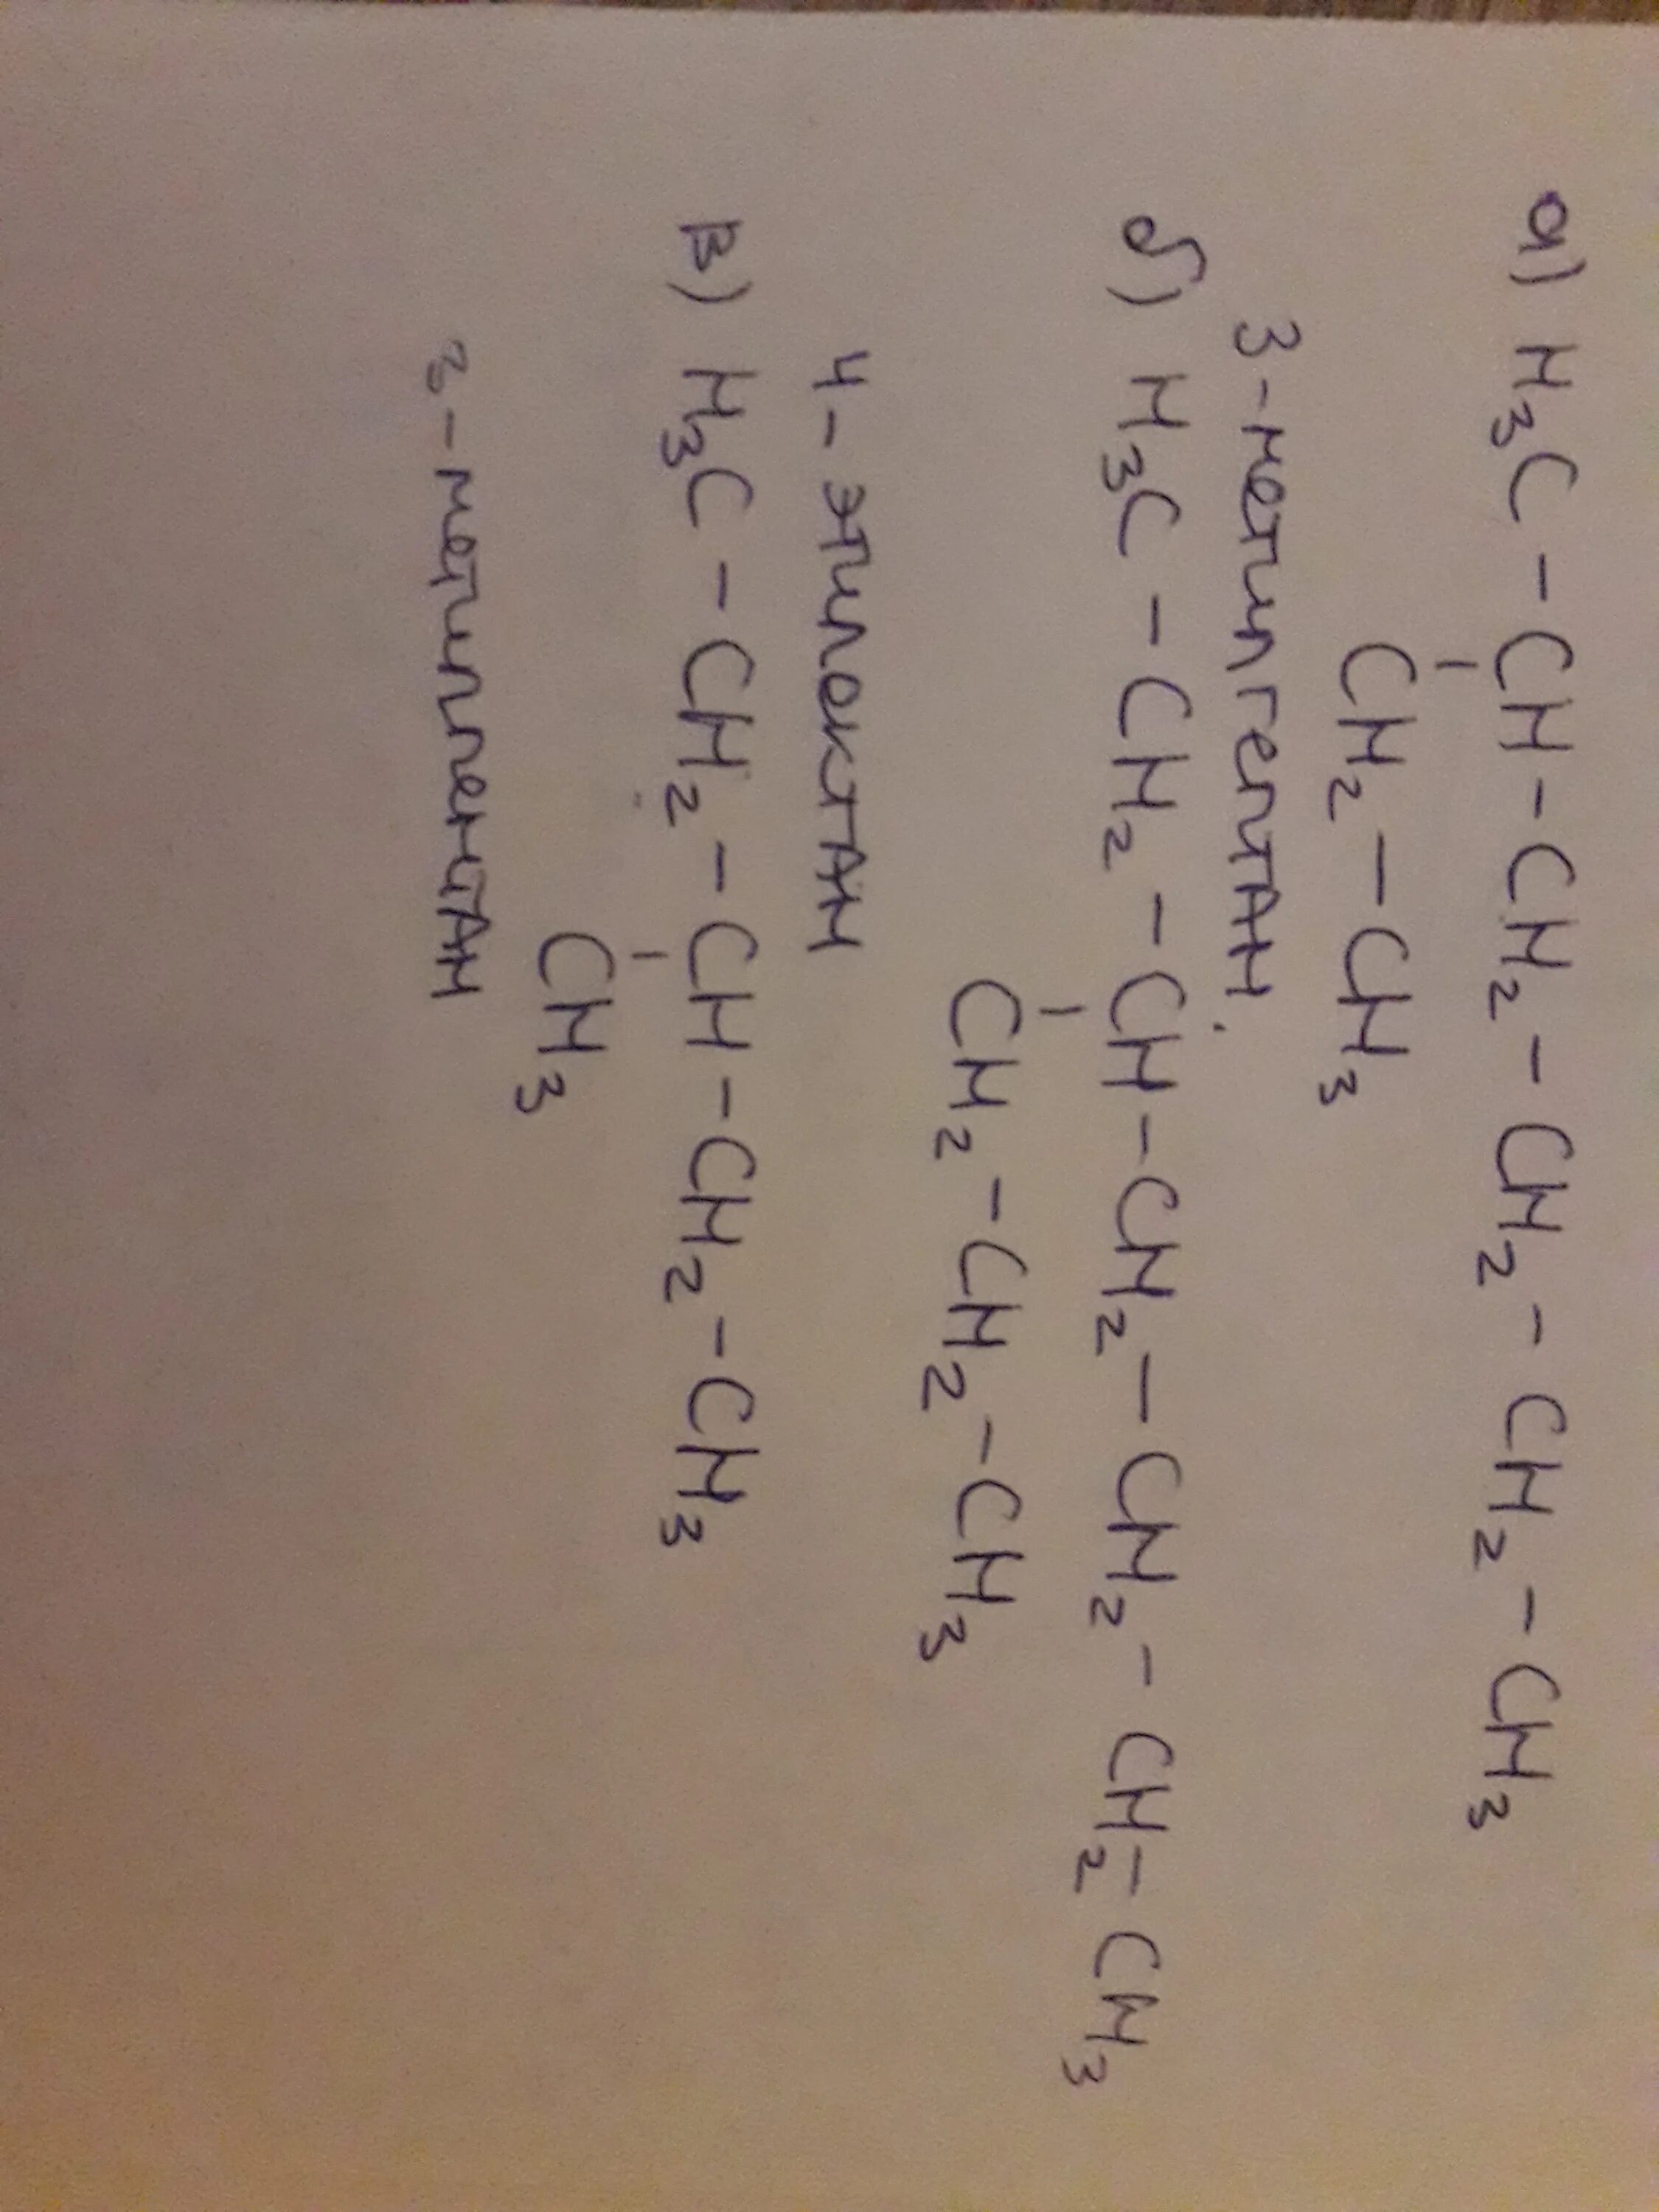 а) H₃C - CH - CH₂ - CH₂ - CH₂ - CH₃
CH₂ - CH₃
3-метилгептан.
б) H₃C - CH₂ - CH - CH₂ - CH₂ - CH₂ - CH₃
CH₂ - CH₂ - CH₃
4-этилоктан
в) H₃C - CH₂ - CH - CH₂ - CH₃
CH₃
3-метилпентан